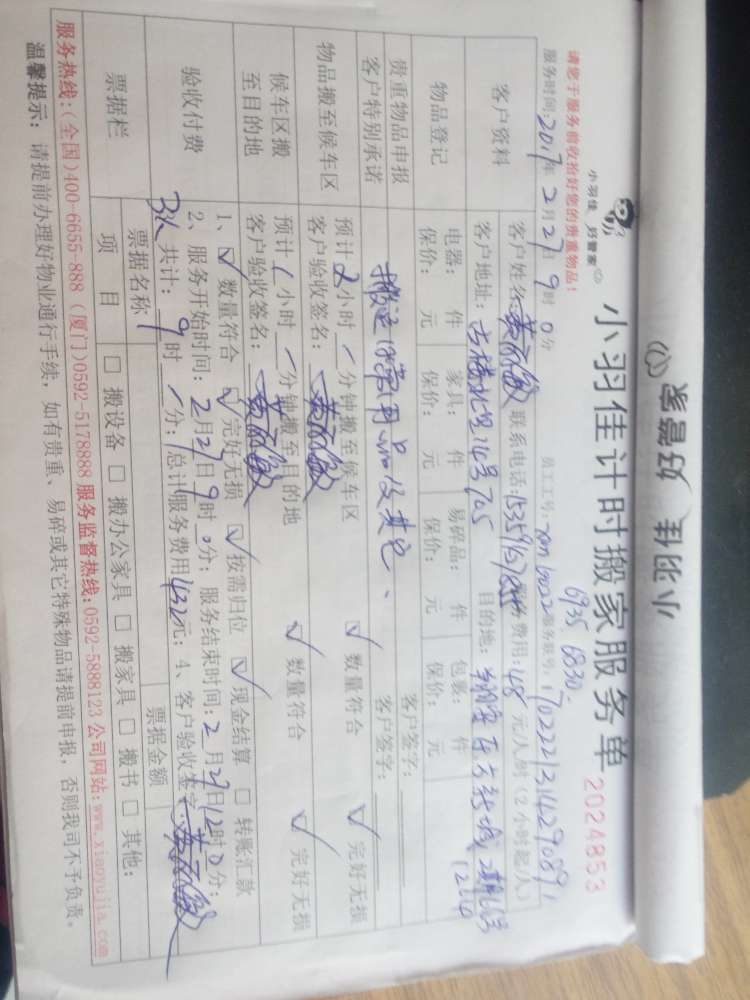 小羽佳 好管家
小羽佳 好管家
小羽佳计时搬家服务单
2024853
6935 6830
请您于服务前收拾好您的贵重物品！
服务时间：2017年2月27日9时0分 员工工号： 服务账号：
客户资料
客户姓名： 联系电话： 服务费用：48元/人/时（2小时起/人）
客户地址：古楼北里14号705 目的地：
1204
物品登记
电器： 件 家具： 件 易碎品： 件 包裹： 件
保价： 元 保价： 元 保价： 元 保价： 元
贵重物品申报
客户特别承诺
搬运日常用品及其它、
客户签字：
客户签字：
物品搬至候车区
预计2小时/分钟搬至候车区 ☑ 数量符合 ☑ 完好无损
客户验收签名：
候车区搬至目的地
预计1小时/分钟搬至目的地 ☑ 数量符合 ☑ 完好无损
客户验收签名：
验收付费
1、☑ 数量符合 ☑ 完好无损 ☑ 按需归位 ☑ 现金结算 □ 转账汇款
2、服务开始时间：2月27日9时0分；服务结束时间：2月27日12时0分；
3、共计：9时/分；总计服务费用432元；4、客户验收签字：
票据栏
票据名称 票据金额
项目 □ 搬设备 □ 搬办公家具 □ 搬家具 □ 搬书 □ 其他：
服务热线：（全国）400-6655-888（厦门）0592-5178888 服务监督热线：0592-5888123 公司网站：www.xiaoyujia.com
温馨提示：请提前办理好物业通行手续，如有贵重、易碎或其它特殊物品请提前申报，否则我司不予负责。